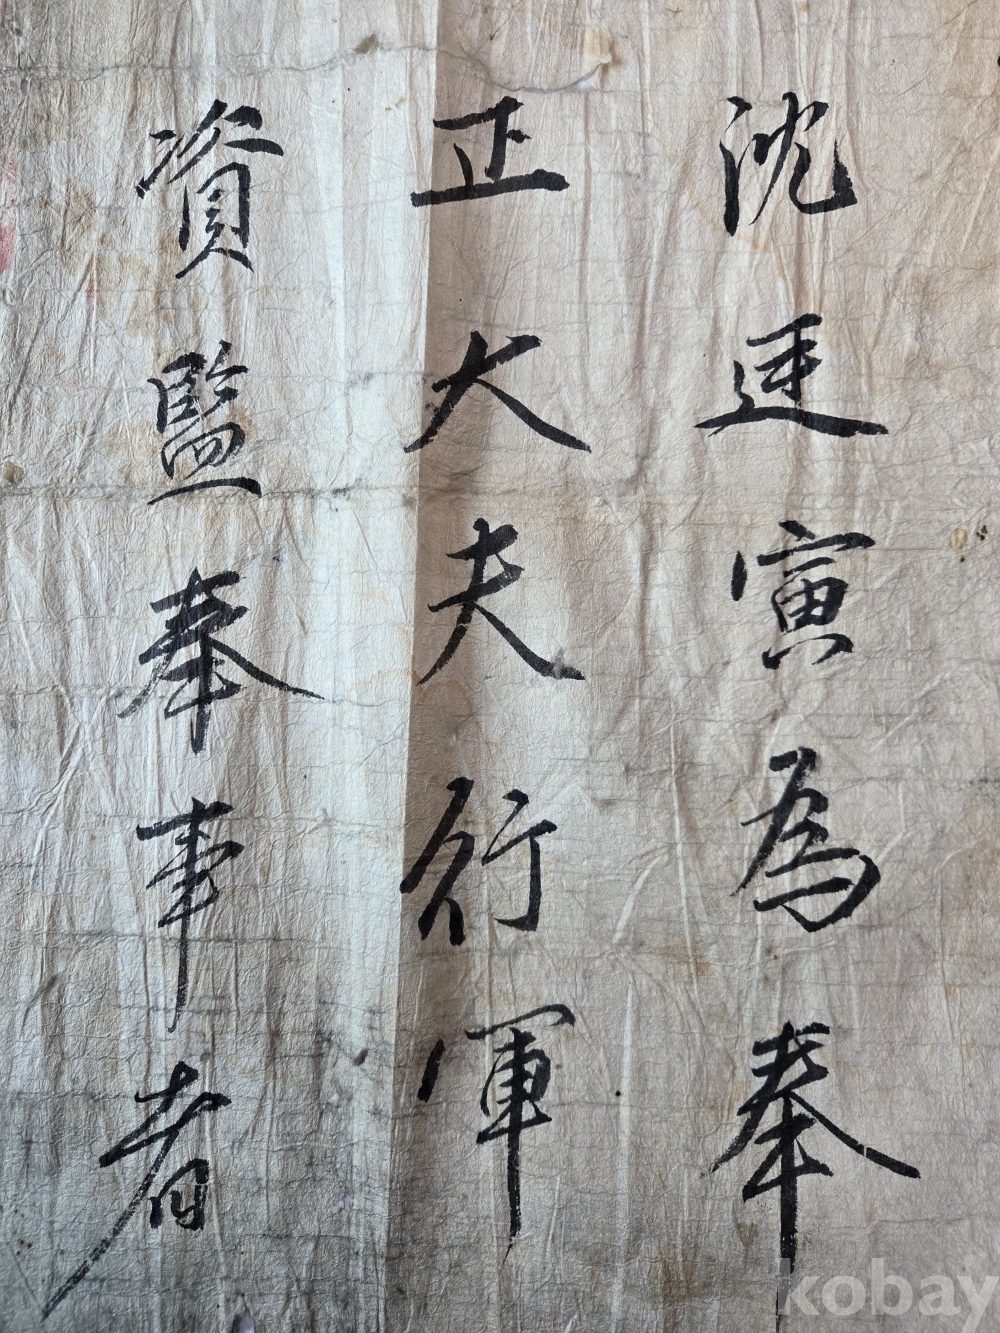 沈廷寅為奉
正大夫行軍
資監奉事者
kobay